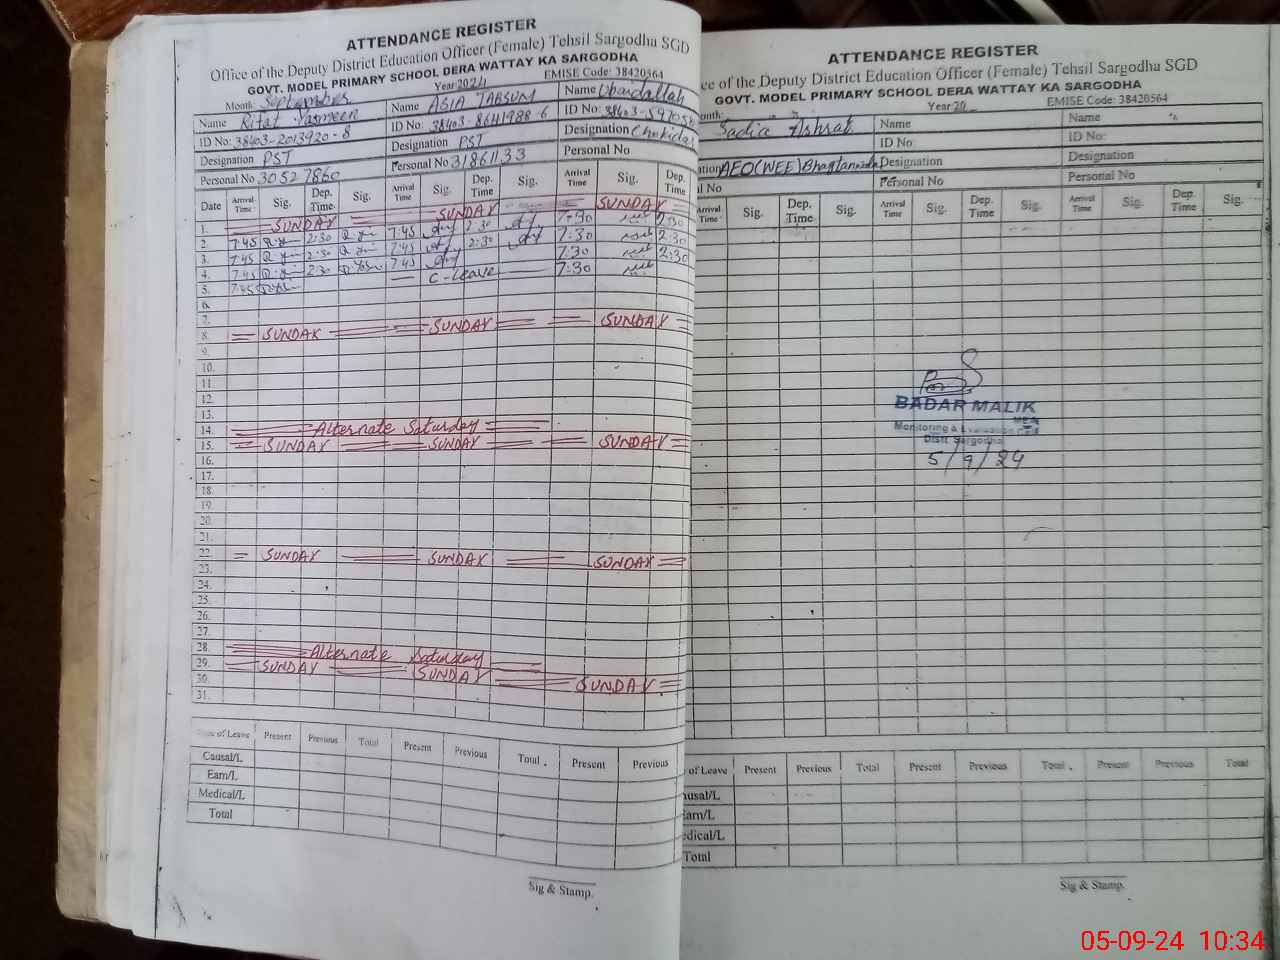 ATTENDANCE REGISTER
Office of the Deputy District Education Officer (Female) Tehsil Sargodha SGD
GOVT. MODEL PRIMARY SCHOOL DERA WATTAY KA SARGODHA
Month September Year 2024 EMISE Code: 38420564
Name Rifat Yasmeen Name ASIA TABSUM Name Ubaidallah
ID No: 38403-2013920-8 ID No: 38403-8641988-6 ID No: 38403-59705
Designation PST Designation PST Designation Chokidar
Personal No 30527860 Personal No 31861133 Personal No
Date Arrival Time Sig. Dep. Time Sig. Arrival Time Sig. Dep. Time Sig. Arrival Time Sig. Dep. Time
1. SUNDAY SUNDAY SUNDAY
2. 7:45 2:30 7:45 2:30 7:30 2:30
3. 7:45 2:30 7:45 2:30 7:30 2:30
4. 7:45 2:30 7:45 7:30 2:30
5. 7:45 C-Leave 7:30
6.
7.
8. SUNDAY SUNDAY SUNDAY
9.
10.
11.
12.
13.
14. Alternate Saturday
15. SUNDAY SUNDAY SUNDAY
16.
17.
18.
19.
20.
21.
22. SUNDAY SUNDAY SUNDAY
23.
24.
25.
26.
27.
28. Alternate Saturday
29. SUNDAY SUNDAY SUNDAY
30.
31.
of Leave Present Previous Total Present Previous Total Present Previous
Causal/L
Earn/L
Medical/L
Total
Sig & Stamp.
ATTENDANCE REGISTER
ce of the Deputy District Education Officer (Female) Tehsil Sargodha SGD
GOVT. MODEL PRIMARY SCHOOL DERA WATTAY KA SARGODHA
onth Year 20 EMISE Code: 38420564
Sadia Ashraf Name Name
ID No: ID No:
ation AEO(WEE) Designation Designation
l No Personal No Personal No
Arrival Time Sig. Dep. Time Sig. Arrival Time Sig. Dep. Time Sig. Arrival Time Sig. Dep. Time Sig.
BADAR MALIK
MEA
Monitoring & Evaluation Cell
Distt Sargodha
5/9/24
of Leave Present Previous Total Present Previous Total Present Previous Total
ausal/L
Earn/L
edical/L
Total
Sig & Stamp.
05-09-24 10:34